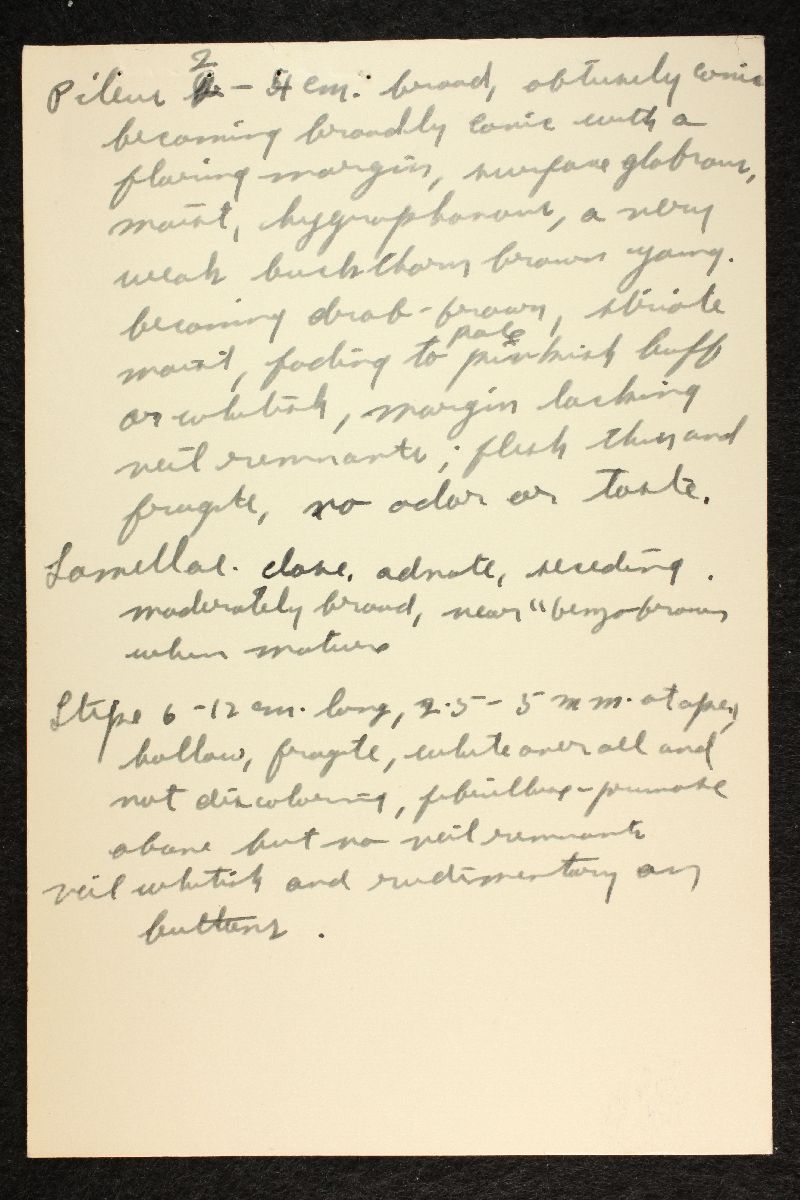 Pileus 2 - 4 cm. broad, obtusely conic
becoming broadly conic with a
flaring margin, surface glabrous,
moist, hygrophanous, a very
weak buckthorn brown young.
becoming drab-brown, striate
moist, fading to pale pinkish buff
or whitish, margin lacking
veil remnants; flesh thin and
fragile, no odor or taste.
Lamellae. close, adnate, seceding.
moderately broad, near "benzo brown
when mature
Stipe 6-12 cm. long, 2.5-5 mm. at apex,
hollow, fragile, white over all and
not discoloring, pruinose
above but no veil remnants
veil whitish and rudimentary on
buttons.